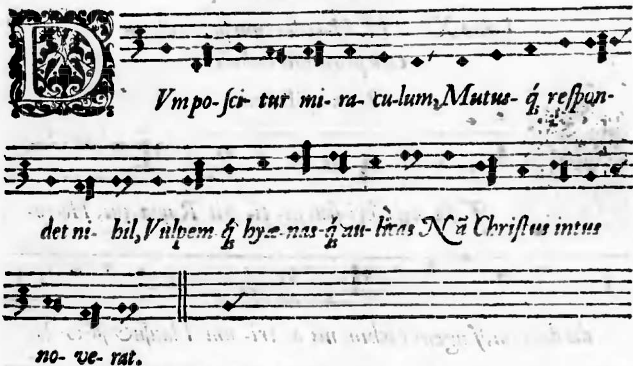 DVmpo-sci-tur mi-ra-cu-lum, Mutus-q́ respon-
det ni-hil, Vulpem-q́ hyæ-nas-q́ au-licas Nã Christus intus
no-ve-rat.